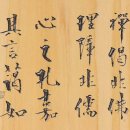 禪偈非佛
理障非儒
心之孔嘉
其言藹如